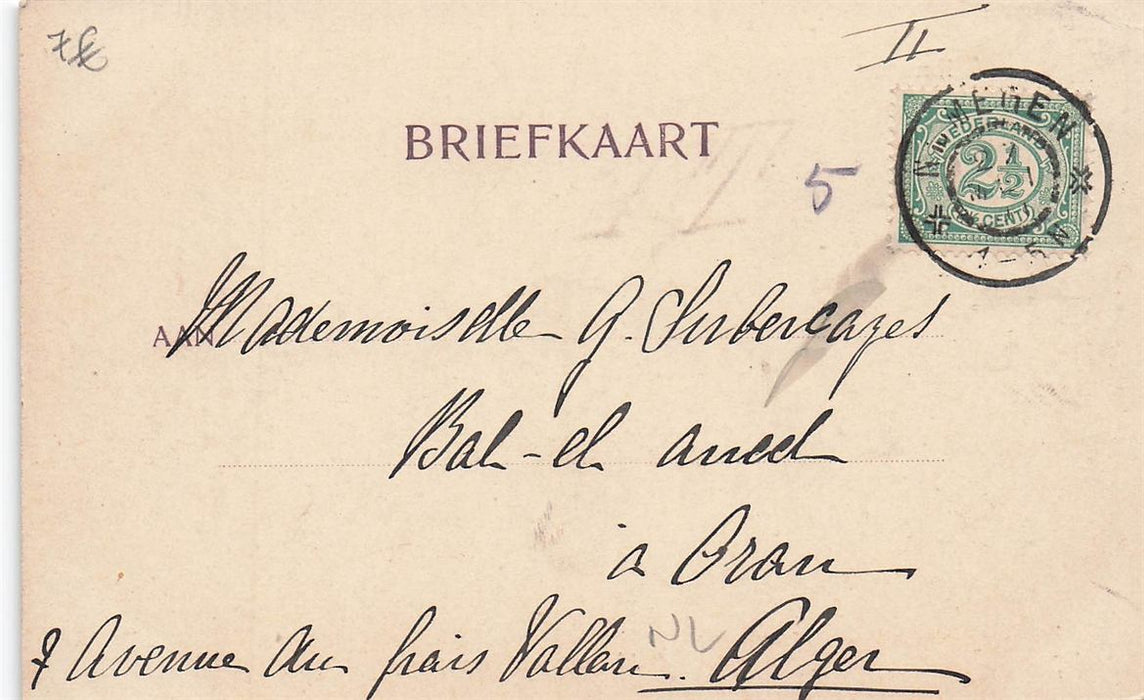 II
BRIEFKAART
5
NEDERLAND
2½
CENT
1-5 N
AAN Mademoiselle G. Subercazes
Bab-el oued
a Oran
7 Avenue du frais Vallon. Alger
NL